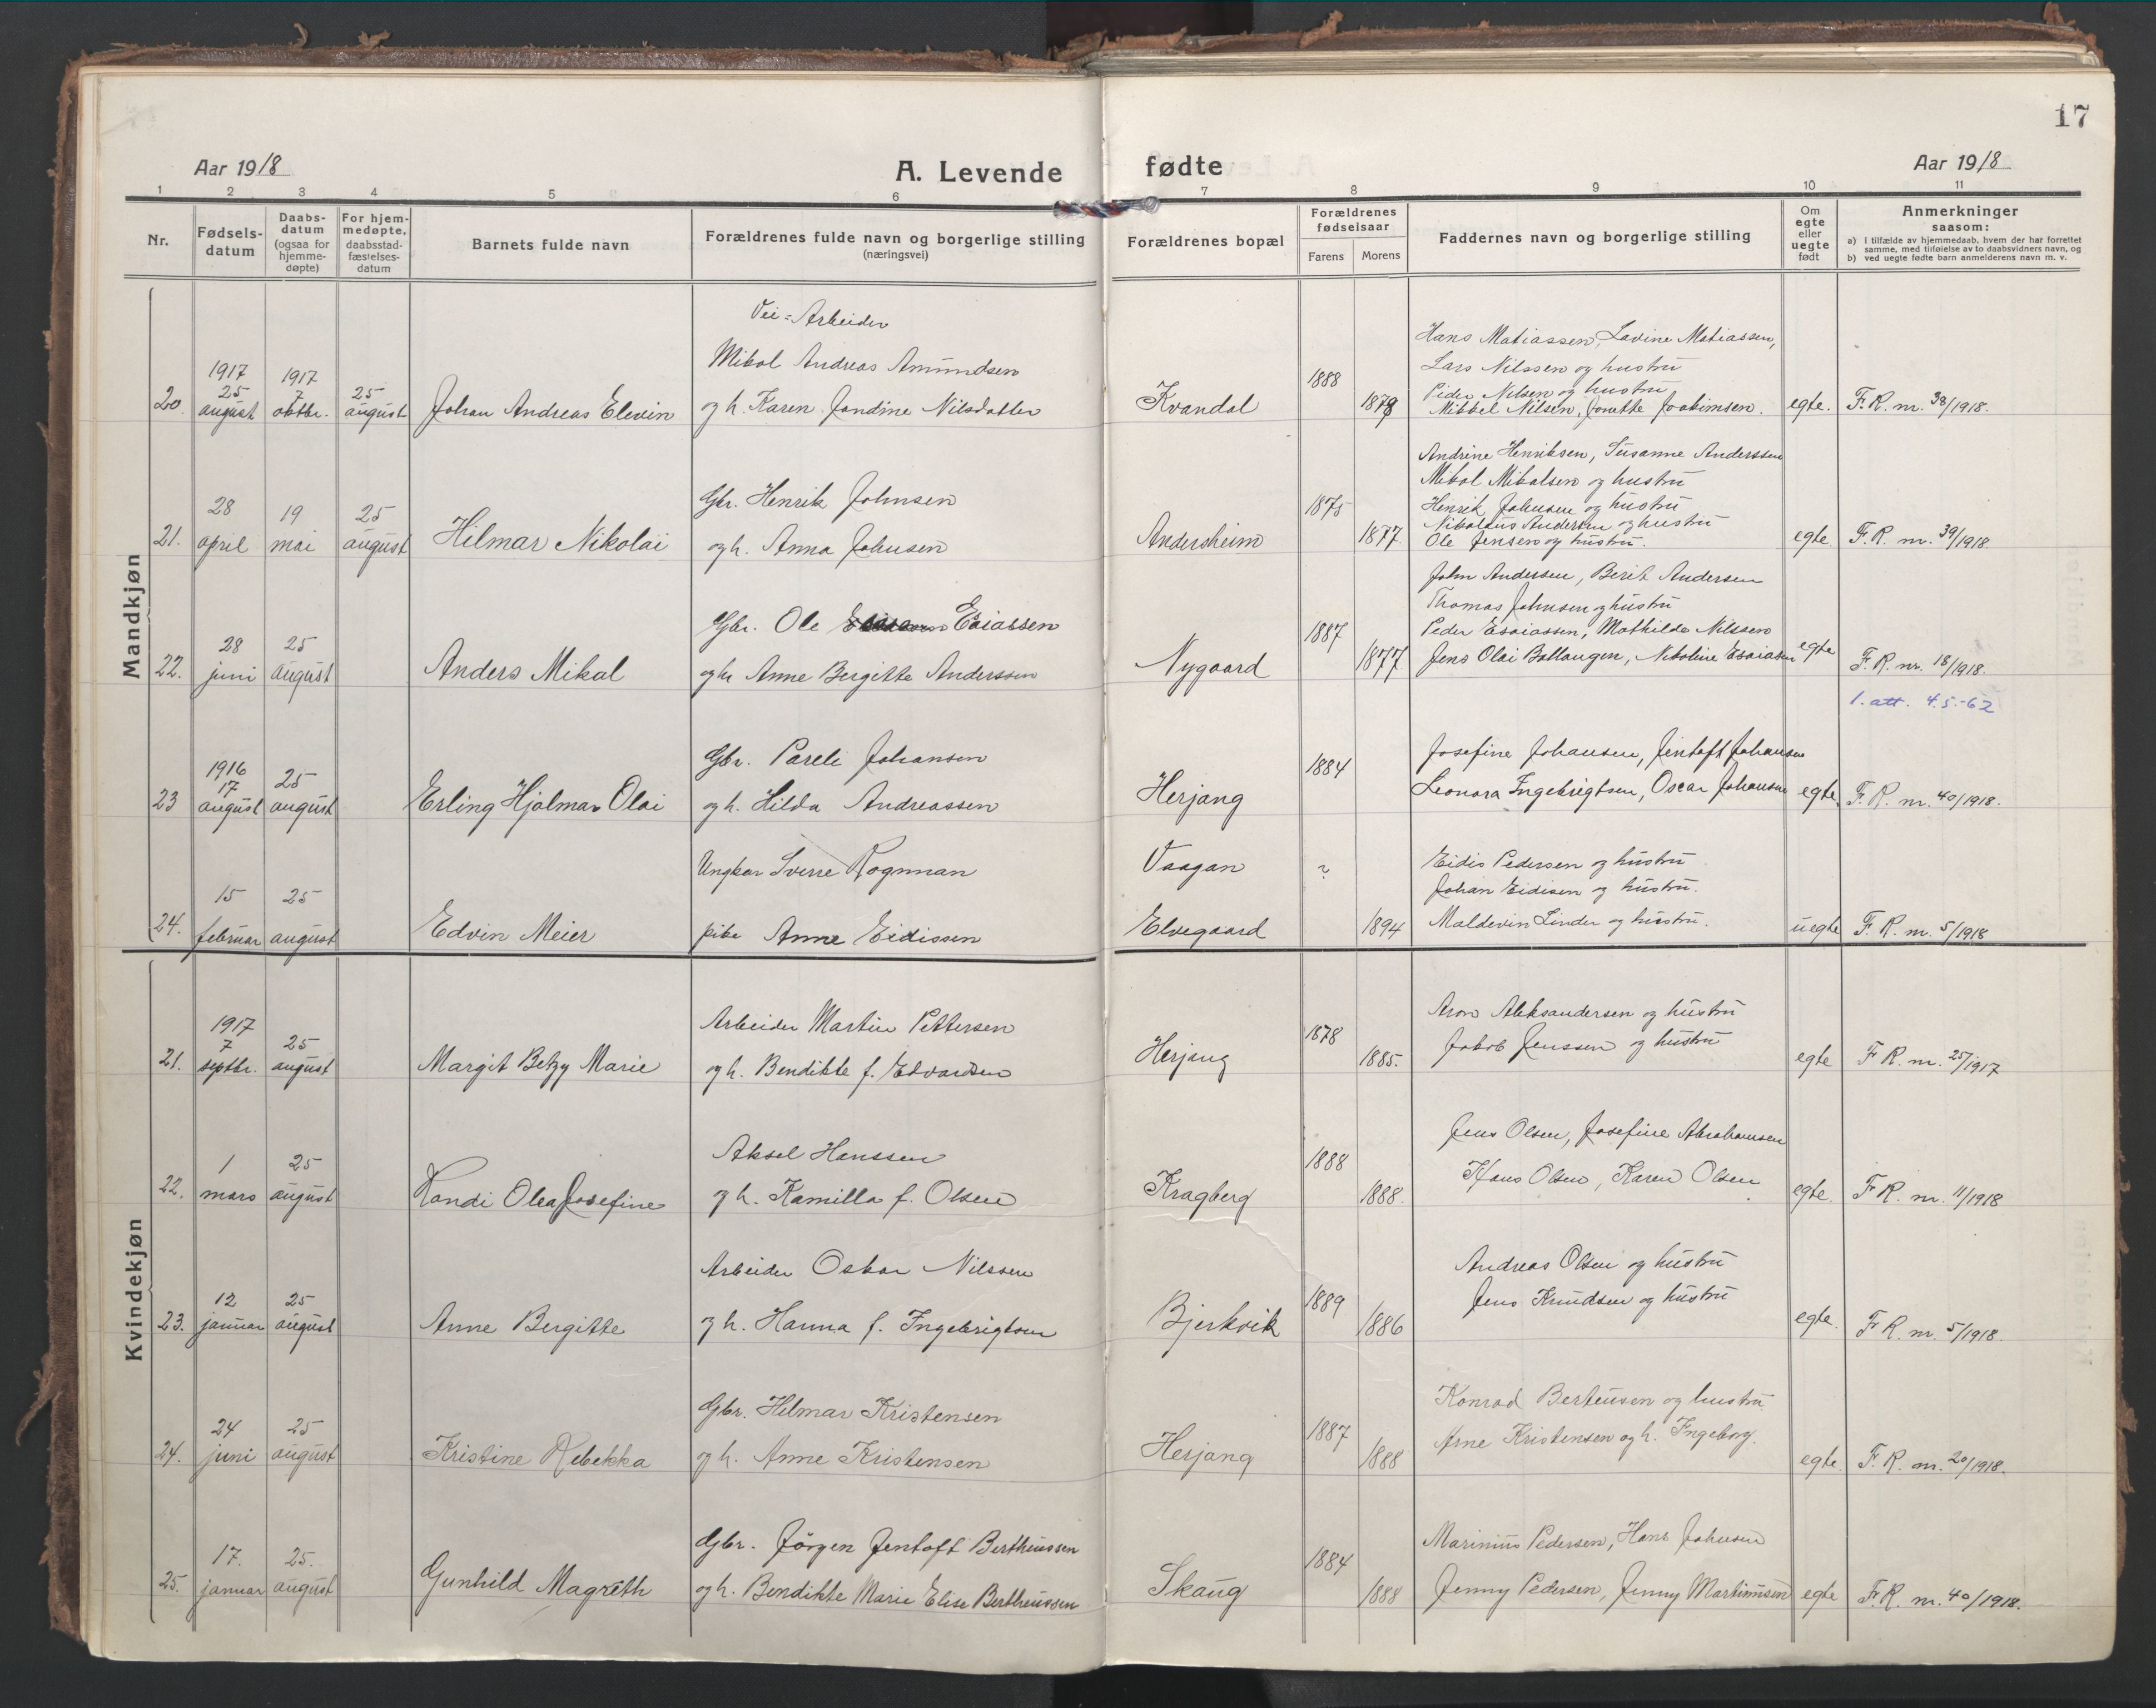 17
Aar 1918 A. Levende fødte Aar 1918
1 2 3 4 5 6 7 8 9 10 11
Nr. Fødselsdatum Daabsdatum (ogsaa for hjemmedøpte) For hjemmedøpte, daabsstadfæstelsesdatum Barnets fulde navn Forældrenes fulde navn og borgerlige stilling (næringsvei) Forældrenes bopæl Forældrenes fødselsaar Farens Morens Faddernes navn og borgerlige stilling Om egte eller uegte født Anmerkninger saasom:
a) I tilfælde av hjemmedaab, hvem der har forrettet samme, med tilføielse av to daabsvidners navn, og
b) ved uegte fødte barn anmelderens navn m. v.
Mandkjøn
Vei-Arbeider
Hans Matiassen, Lovine Matiassen,
1917 1917 Mikal Andreas Amundsen 1888 Lars Nilssen og hustru
25 7 25 Peder Nilsen og hustru
20 august oktbr. august Johan Andreas Elevin og h. Karen Jandine Nilsdatter Kvandal 1879 Mikkel Nilsen, Jonette Joakimsen. egte. F. R. nr. 38/1918.
Andrine Henriksen, Susanne Anderssen
Mikal Mikalsen og hustru
28 19 25 Gbr. Henrik Johnsen 1875 Henrik Johnsen og hustru
Nikolaus Andersen og hustru
21. april mai august Hilmar Nikolai og h. Anna Johnsen Andersheim 1877 Ole Jensen og hustru. egte F. R. nr. 39/1918.
John Andersen, Berit Andersen
Thomas Johnsen og hustru
28 25 Gbr. Ole Esiassen 1887 Peder Esaiassen, Mathilde Nilssen
22. juni august Anders Mikal og h Anne Bergitte Anderssen Nygaard 1877 Jens Olai Ballangen, Nikoline Esaiasen egte F. R. nr. 18/1918.
1. att. 4.5.-62
1916 Gbr. Pareli Johansen 1884 Josefine Johansen, Jentoft Johansen
17 25
23 august august Erling Hjalmar Olai og h. Hilda Andreassen Herjang Leonora Ingebrigtsen, Oscar Johansen egte. F. R. nr. 40/1918.
Ungkar Sverre Rognman Vaagan ? Eidis Pedersen og hustru
15 25 Johan Eidisen og hustru.
24. februar august Edvin Meier pike Anne Eidissen Elvegaard 1894 Maldevin Linder og hustru. uegte F. R. nr. 5/1918
Kvindekjøn
1917 Arbeider Martin Pettersen 1878 Aron Aleksandersen og hustru
7 25 Jakob Jenssen og hustru
21. septbr. august Margit Betzy Marie og h. Bendikte f. Edvardsen Herjang 1885. egte F R. nr. 25/1917
Aksel Hanssen 1888 Jens Olsen, Josefine Abrahamsen
1 25 Hans Olsen, Karen Olsen
22. mars august Randi Olea Josefine og h. Kamilla f. Olsen Kragberg 1888. egte. F R. nr. 11/1918
Arbeider Oskar Nilssen 1889 Andreas Olsen og hustru
12 25 Jens Knudsen og hustru
23. januar august Anne Bergitte og h. Hanna f. Ingebrigtsen Bjerkvik 1886 egte. F R. nr. 5/1918.
Gbr. Hilmar Kristensen 1887 Konrad Berteusen og hustru
24 25 Arne Kristensen og h. Ingeborg.
24. juni august Kristine Rebekka og h. Anne Kristensen Herjang 1888 egte. F. R. nr. 20/1918.
Gbr. Jörgen Jentoft Bertheussen 1884 Marinius Pedersen, Hans Johnsen
17. 25.
25. januar august Gunhild Magreth og h. Bendikte Marie Elise Bertheussen Skaug 1888 Jenny Pedersen, Jenny Martinusen egte F. R. nr. 40/1918.